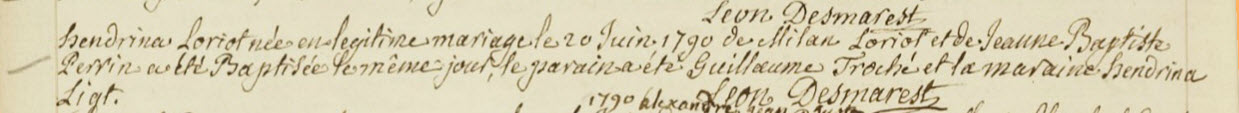 Leon Desmarest
hendrina Loriot née en legitime mariage le 20 Juin 1790 de Milan Loriot et de Jeanne Baptiste
Perrin a été Baptisée le même jour, le parain a été Guillaume Troché et la maraine hendrina
Ligt. Leon Desmarest
1790 alexandre Jean